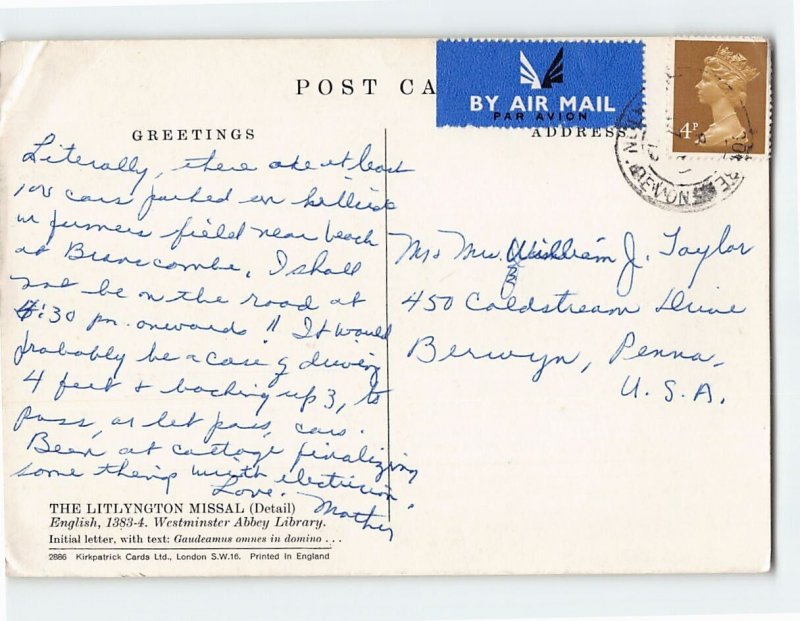 POST CA
BY AIR MAIL
PAR AVION
4P
DEVON
GREETINGS
ADDRESS
Literally, there are at least
100 cars parked on hillside
in farmers field near beach
at Branscombe. I shall
not be on the road at
4:30 pm. onwards!! It would
probably be a case of driving
4 feet & backing up 3, to
pass, or let pass, cars.
Been at cottage finalizing
some things with electrician.
Love. Mother
Mr & Mrs. William J. Taylor
450 Coldstream Drive
Berwyn, Penna.
U. S. A.
THE LITLYNGTON MISSAL (Detail)
English, 1383-4. Westminster Abbey Library.
Initial letter, with text: Gaudeamus omnes in domino . . .
2886 Kirkpatrick Cards Ltd., London S.W.16. Printed in England